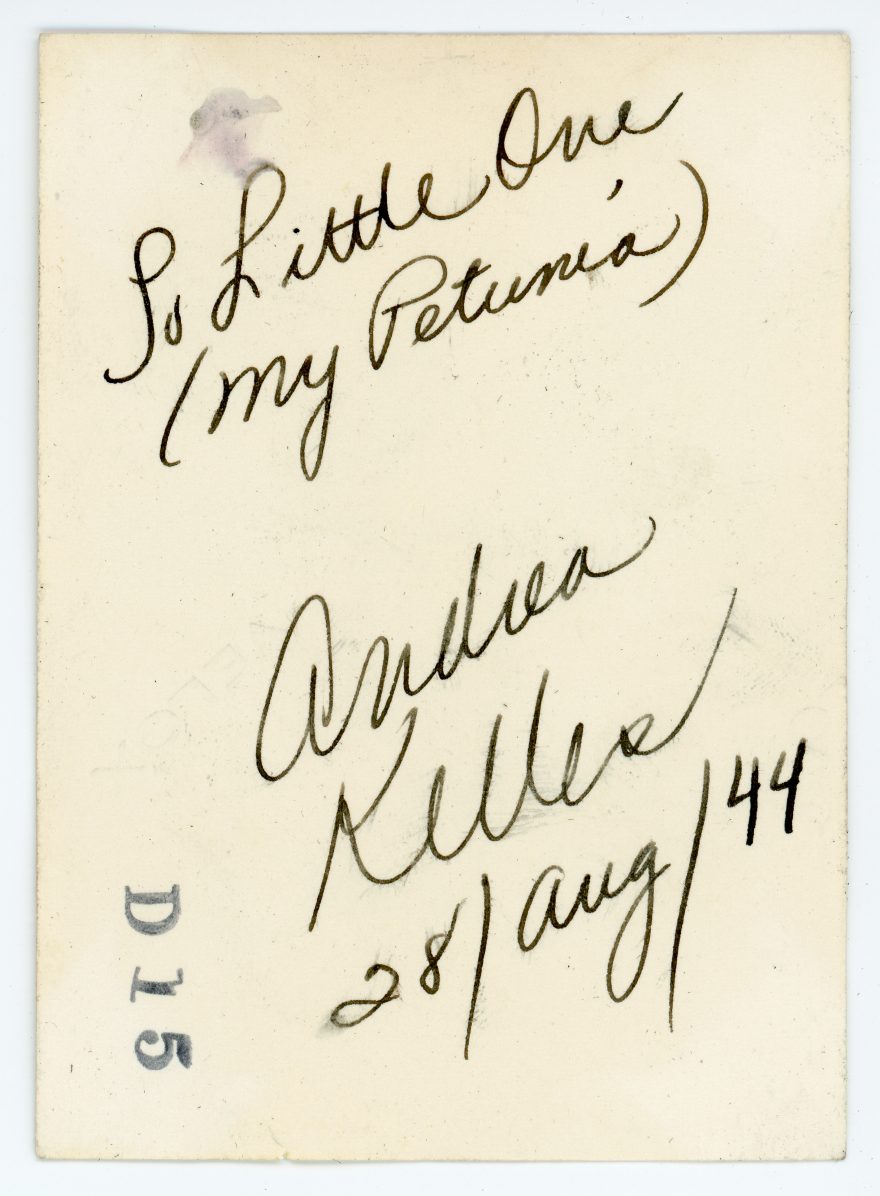 To Little One
(My Petunia)
Andrea
Keller
28/Aug/44
D15